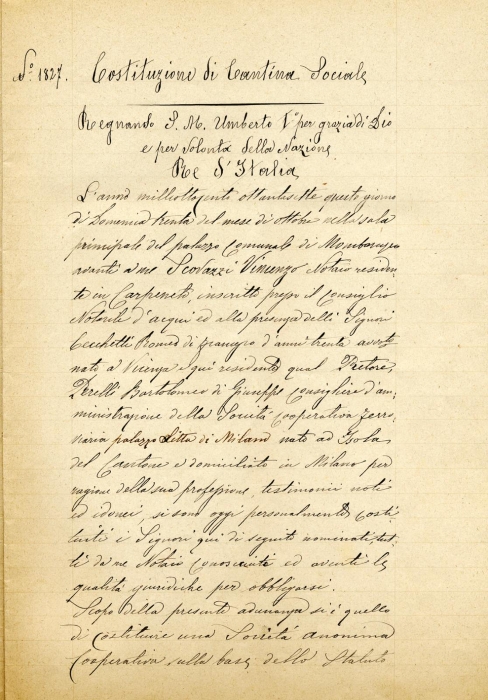 N.º 1827. Costituzione di Cantina Sociale
Regnando S. M. Umberto I.º per grazia di Dio
e per volontà della Nazione
Re d'Italia
L'anno milleottocento ottantasette questo giorno
di Domenica trenta del mese di ottobre nella sala
principale del palazzo Comunale di
avanti a me Scovazzi Vincenzo Notaio residen
te in Carpeneto, inscritto presso il Consiglio
Notarile d'Acqui ed alla presenza delli Signori
Cecchetti Romeo di d'anni trenta
nato a Vicenza e qui residente qual Pretore,
Perelli Bartolomeo di Giuseppe Consigliere d'am=
ministrazione della Società Cooperativa ferro
viaria palazzo Litta di Milano nato ad Isola
del Cantone e domiciliato in Milano per
ragione della sua professione, testimonii noti
ed idonei, si sono oggi personalmente costi
tuiti i Signori qui di seguito nominati tut=
ti da me Notaio conosciuti ed aventi le
qualità giuridiche per obbligarsi.
Scopo della presente adunanza si è quello
di costituire una Società anonima
Cooperativa sulla base dello Statuto